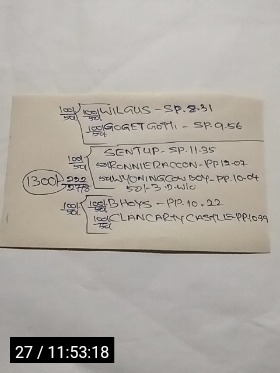 100/50 100/50 WILGUS - SP. 8.31
100/50 GOGETGOTTI - SP. 9.56
SENTUP - SP. 11.35
100/50 50 RONNIERACCON - PP.
1300/- 50 WYONINGCOWBOY - PP. 10.04
50/- 3.D.W/C
100/50 100/50 BHOYS - PP. 10.22
100/50 CLANCARTYCASTLE - PP.
27 / 11:53:18